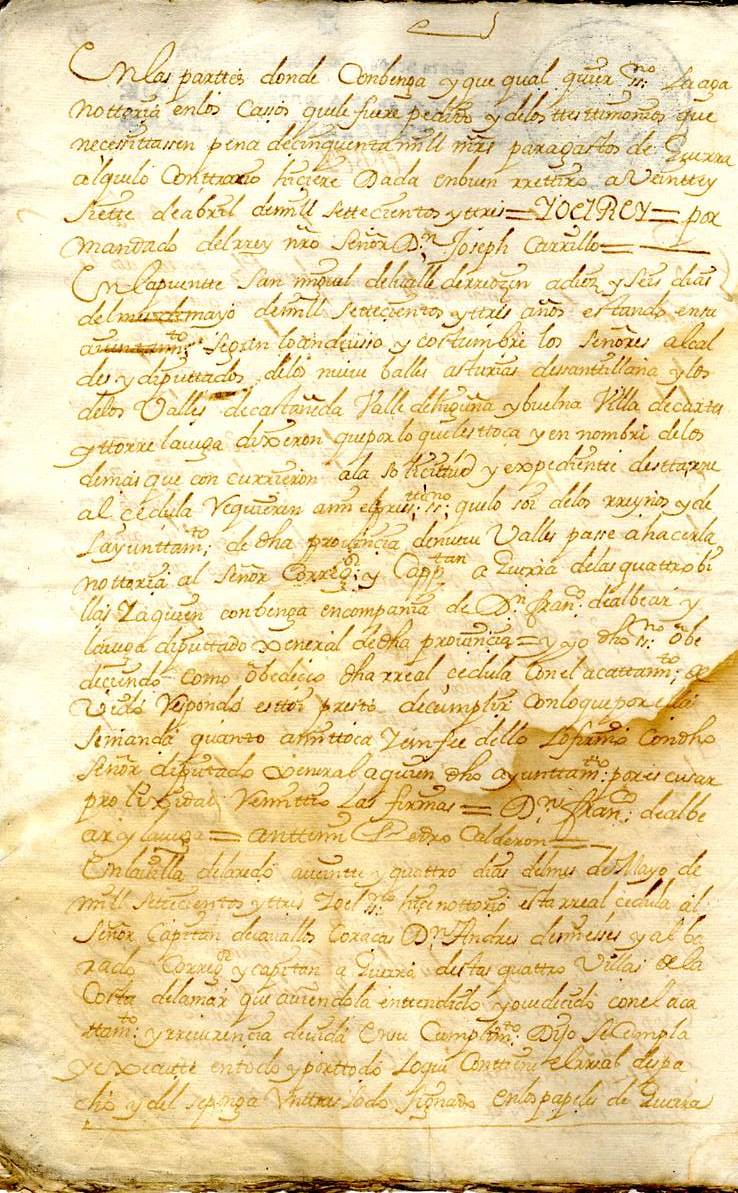 En las parttes donde Conbenga y que qual quier ss.no La aga
nottoria en los Cassos que le fuere pedido y de los testtimonios que
necesittassen pena de cinquenta mill mrs para gastos de Guerra
al que lo Conttrario hiciere Dada en buen rretiro a Veintte y
Siette de abril de mill settecientos y ttres = YO EL REY = por
mandado del rrey nro Señor Dn Joseph Carrillo =
En la puentte San miguel del valle de rreozin a diez y seis dias
del mes de mayo de mill settecientos y ttres años estando en su
ayuntam.to segun lo an de usso y costumbre los Señores alcal
des y diputtados de los nueve balles asturias de santtillana y los
de los Valles de castañeda Valle de higuña y buelna Villa de cartes
y ttorre la vega dixeron que por lo que les ttoca y en nombre de los
demas que con currieron a la solicittud y expedientte desta rre
al cedula Requieren a mi el press.te ss.no que lo soi de los rreynos y de
L ayunttam.to de dha provincia de nueve Valles passe a hacerla
nottoria al Señor Correg.or y Capp.tan a Guerra de las quattro bi
llas Y a quien conbenga en compania de Dn fran.co de albear y
la vega diputtado xeneral de dha provincia = y yo dho ss.no obe
deciendo como obedezco dha rreal cedula con el acattam.to de
Vido Respondo esttoi presto de cumplir con lo que por ella
se manda quanto a mi ttoca Y en fee dello Lo firmo Con dho
Señor diputado xeneral a quien dho ayunttam.to por es cusar
pro lixidad Remittio las firmas = Dn fran.co de albe
ar y la vega = antte mi Pedro Calderon =
En la villa de laredo a veintte y quattro dias del mes de Mayo de
mill settecientos y ttres Yo el ss.no hice nottorio esta rreal cedula al
Señor Capitan de cavallos Corazas Dn Andres de messes y al bo
rado Correg.or y capitan a Guerra destas quattro Villas de la
Costa de la mar que aviendola entendido y ovedecido con el aca
ttam.to y rreverencia devida en su Cumplim.to Dijo se Cumpla
y execute en todo y por ttodo lo que Conttiene el rreal despa
cho y del se ponga Un ttraslado signado en los papeles de Guerra